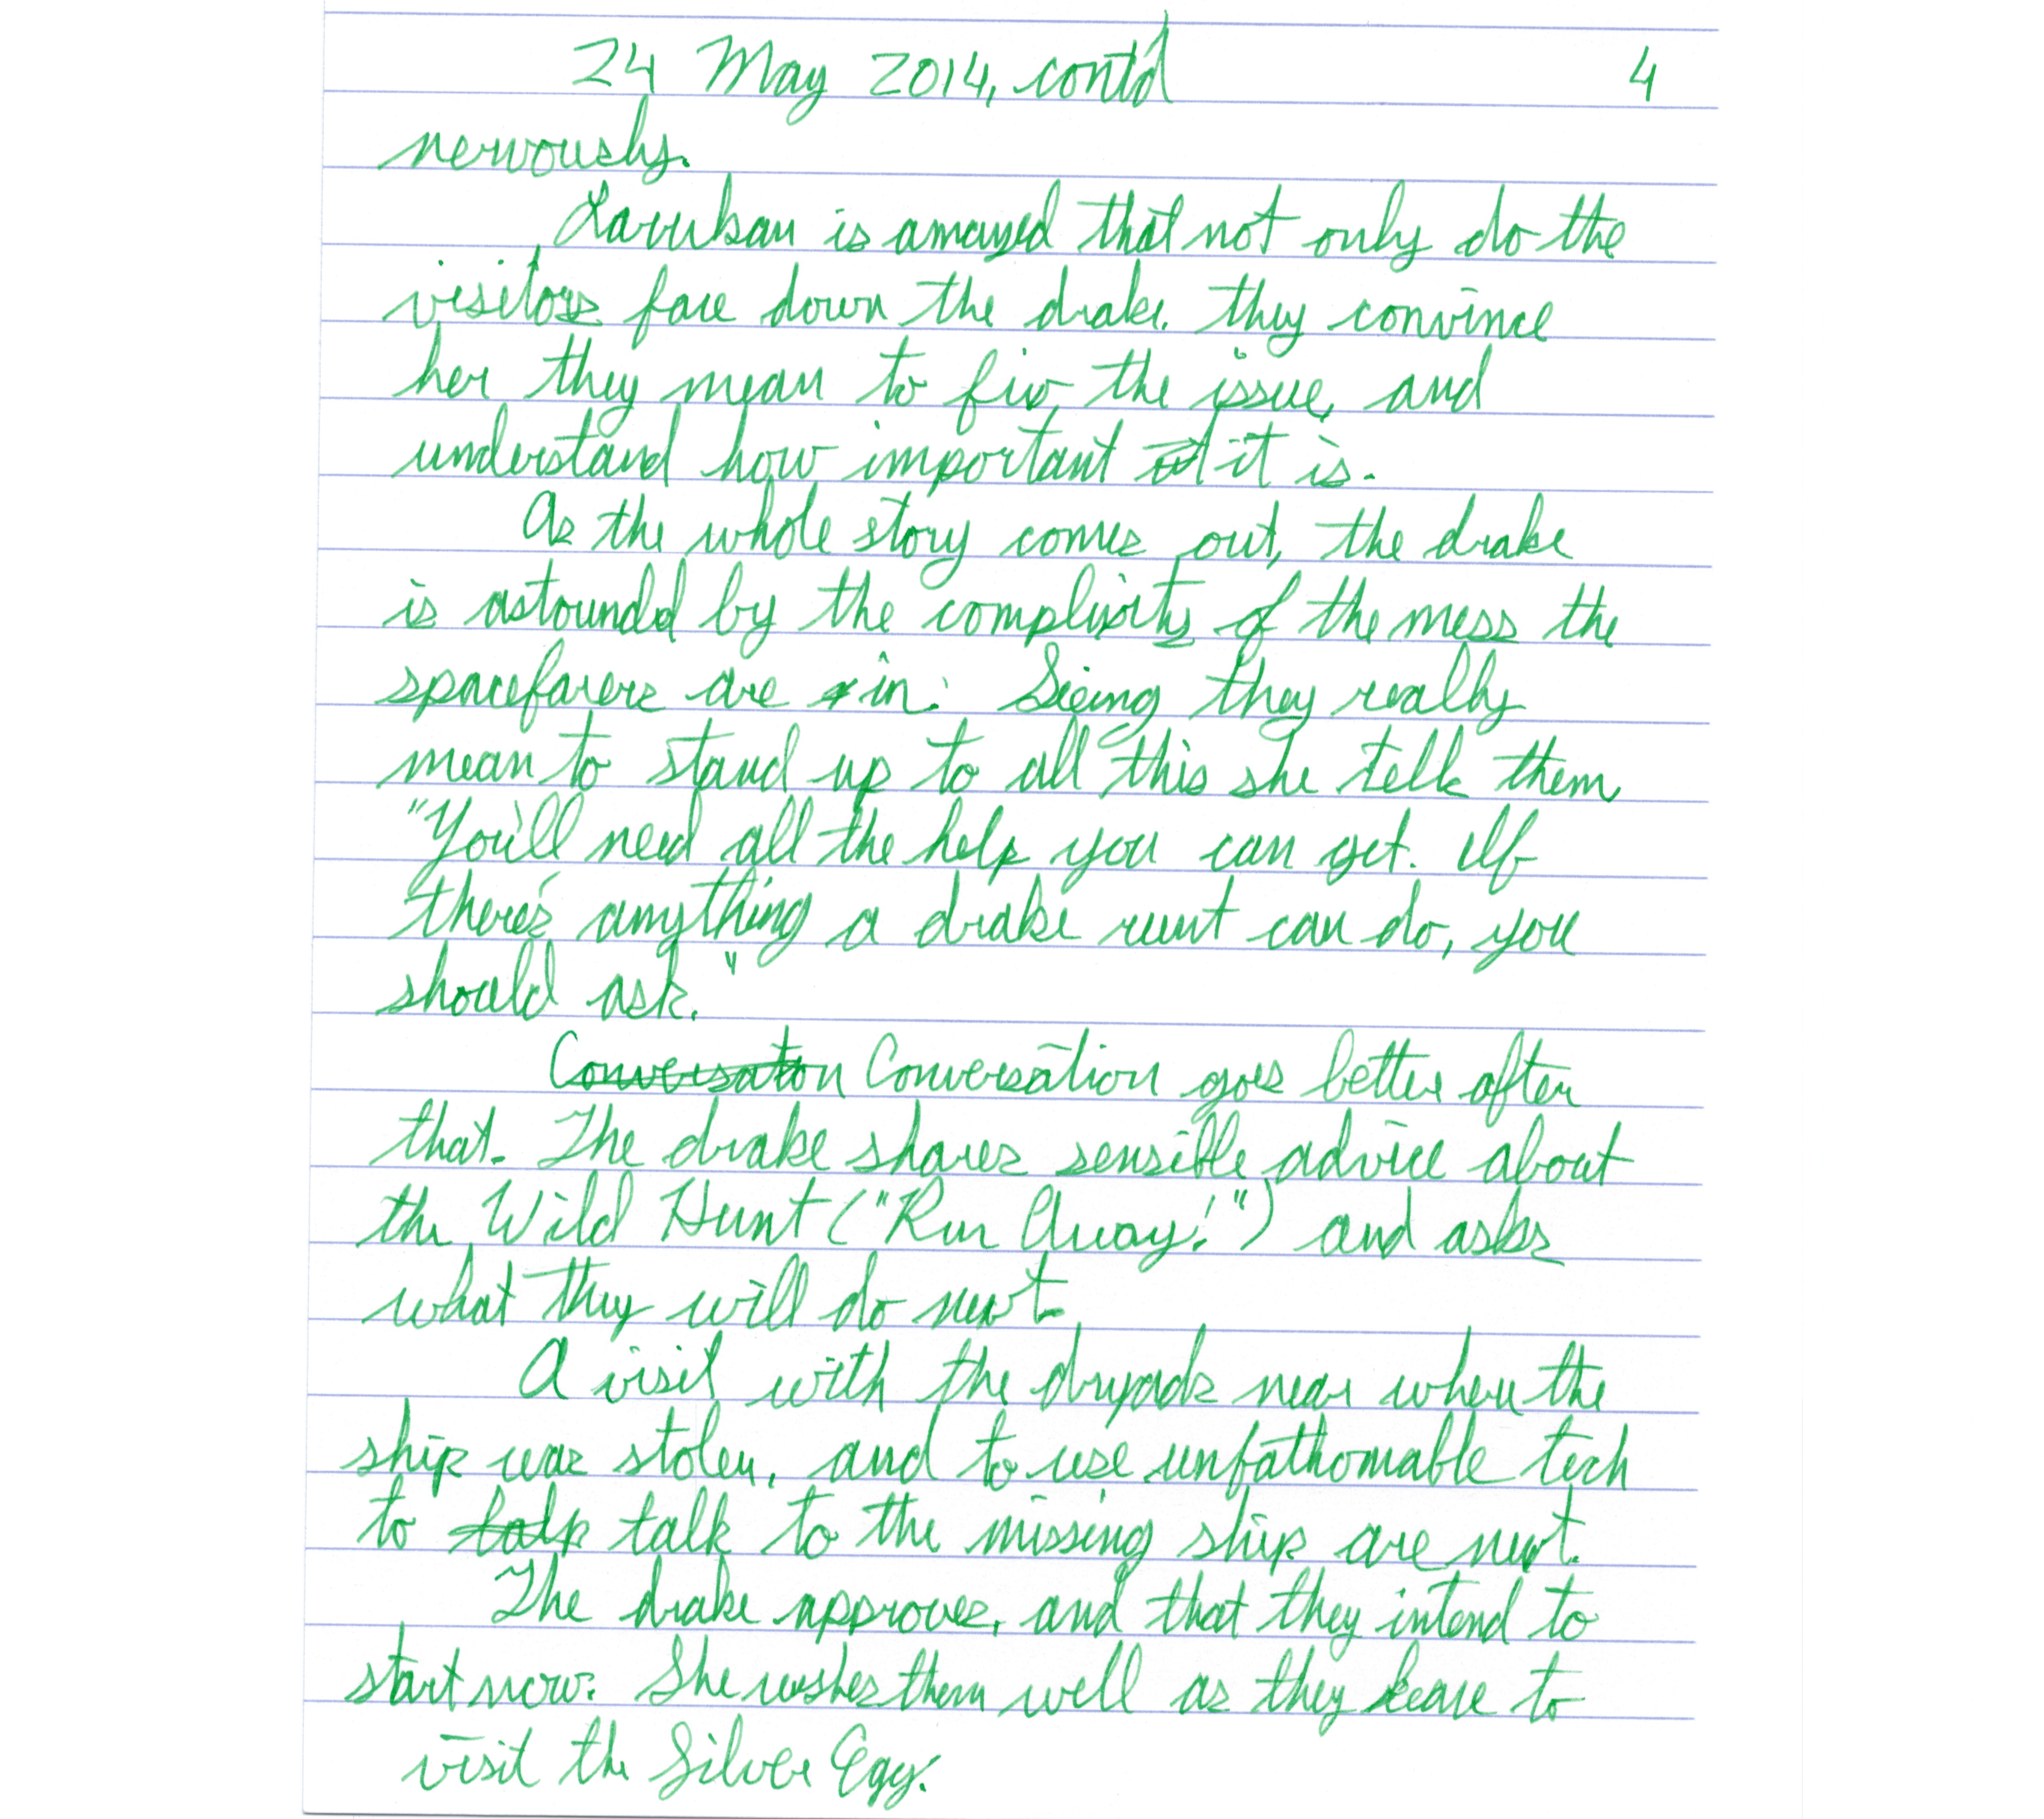 24 May 2014, cont'd 4
nervously.
Larukan is amazed that not only do the
visitors face down the drake, they convince
her they mean to fix the issue, and
understand how important it is.
As the whole story comes out, the drake
is astounded by the complexity of the mess the
spacefarers are in. Seeing they really
mean to stand up to all this she tells them,
"You'll need all the help you can get. If
there's anything a drake runt can do, you
should ask."
Conversaton Conversation goes better after
that. The drake shares sensible advice about
the Wild Hunt ("Run Away!") and asks
what they will do next.
A visit with the dryads near where the
ship was stolen, and to use unfathomable tech
to talk talk to the missing ship are next.
The drake approves, and that they intend to
start now. She wishes them well as they leave to
visit the Silver Egg.